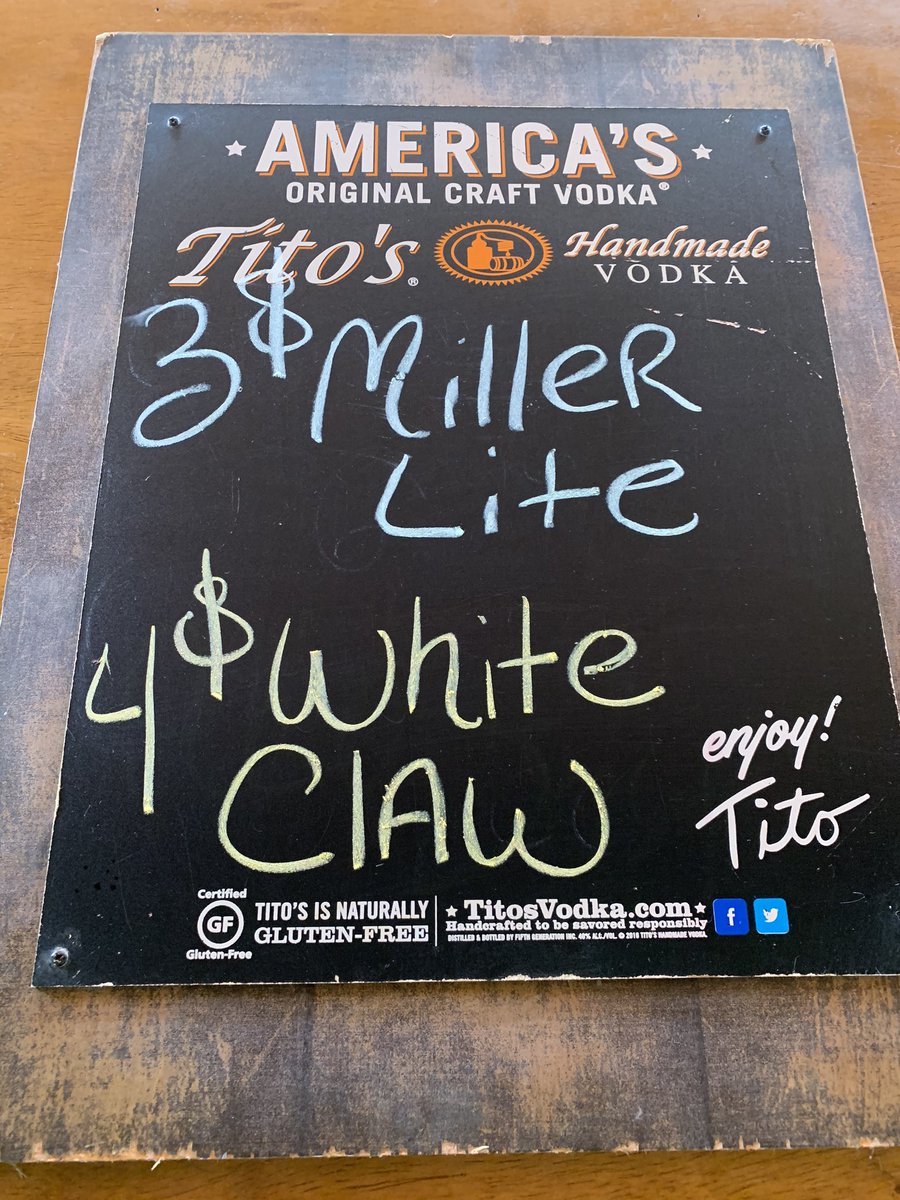 AMERICA'S
ORIGINAL CRAFT VODKA®
Tito's® Handmade
VODKA
3$ Miller
Lite
4$ White
Claw
enjoy!
Tito
Certified
GF
Gluten-Free
TITO'S IS NATURALLY
GLUTEN-FREE
TitosVodka.com
Handcrafted to be savored responsibly
DISTILLED & BOTTLED BY FIFTH GENERATION INC. 40% ALC./VOL. © 2018 TITO'S HANDMADE VODKA.
f